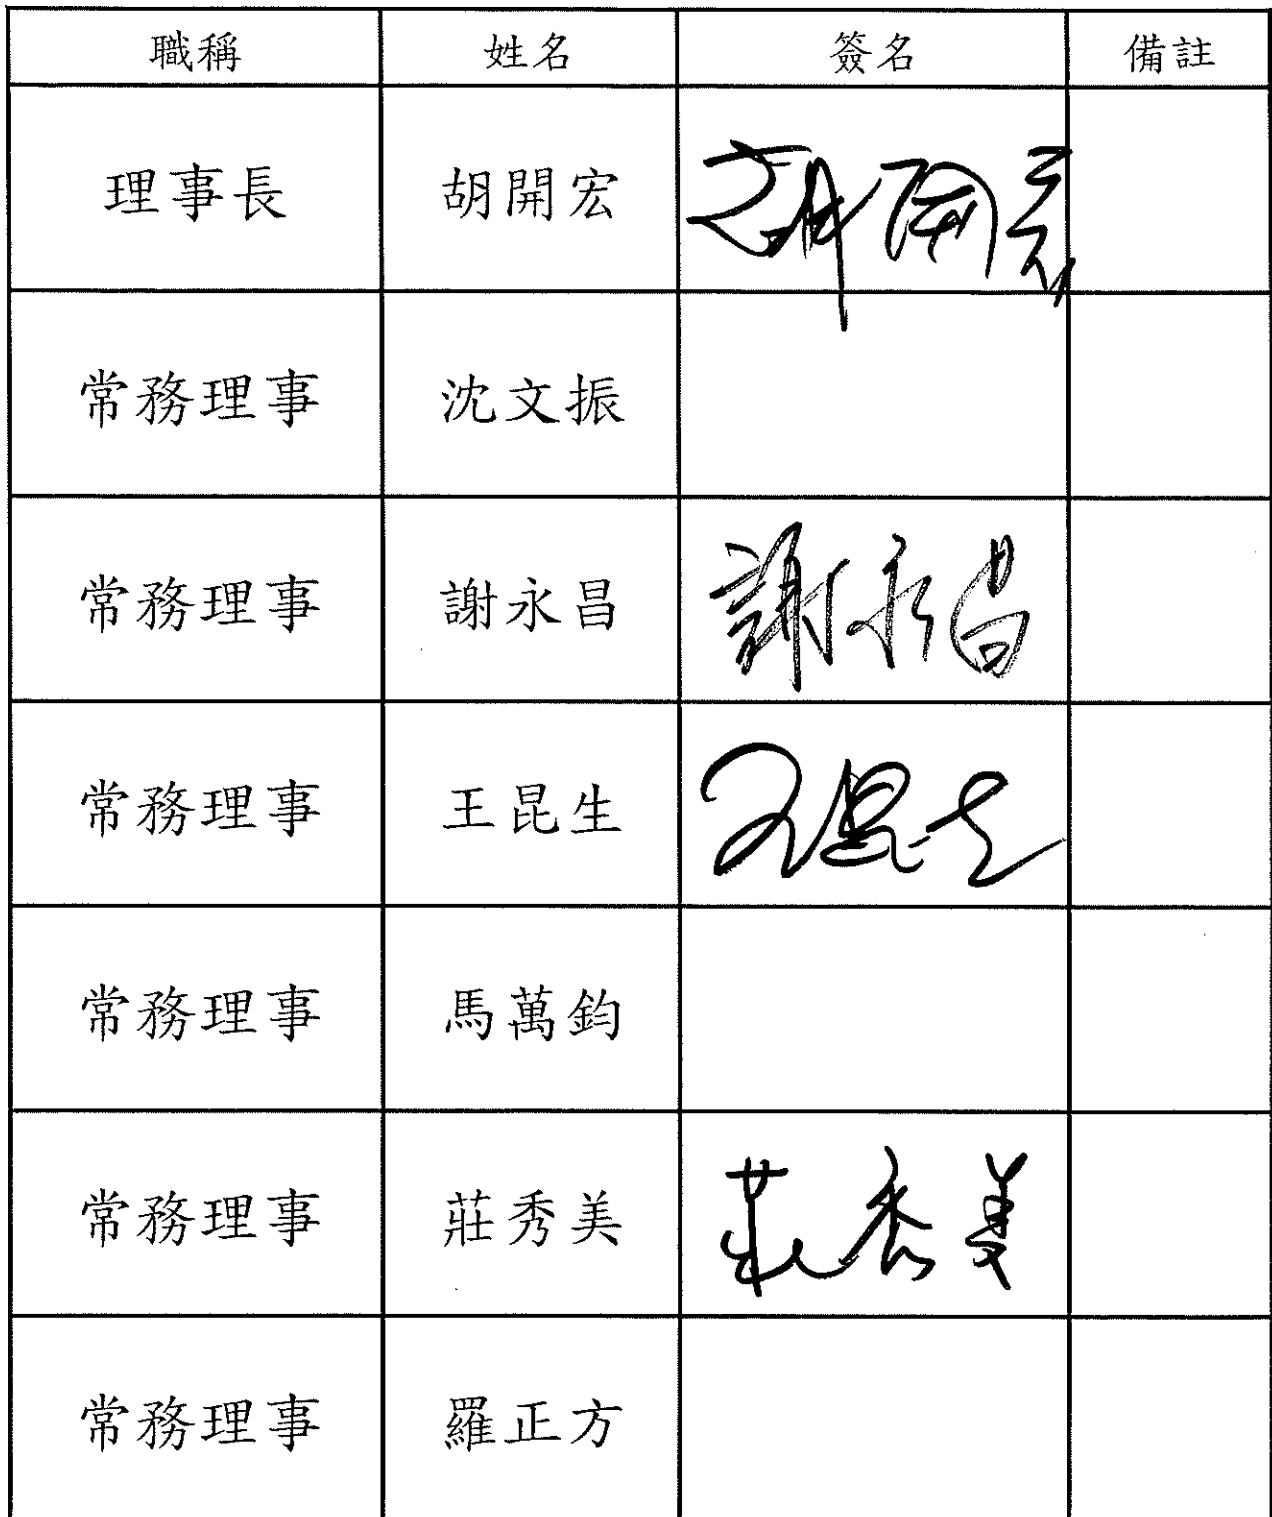 職稱 姓名 簽名 備註
理事長 胡開宏 胡開宏
常務理事 沈文振
常務理事 謝永昌 謝永昌
常務理事 王昆生 王昆生
常務理事 馬萬鈞
常務理事 莊秀美 莊秀美
常務理事 羅正方